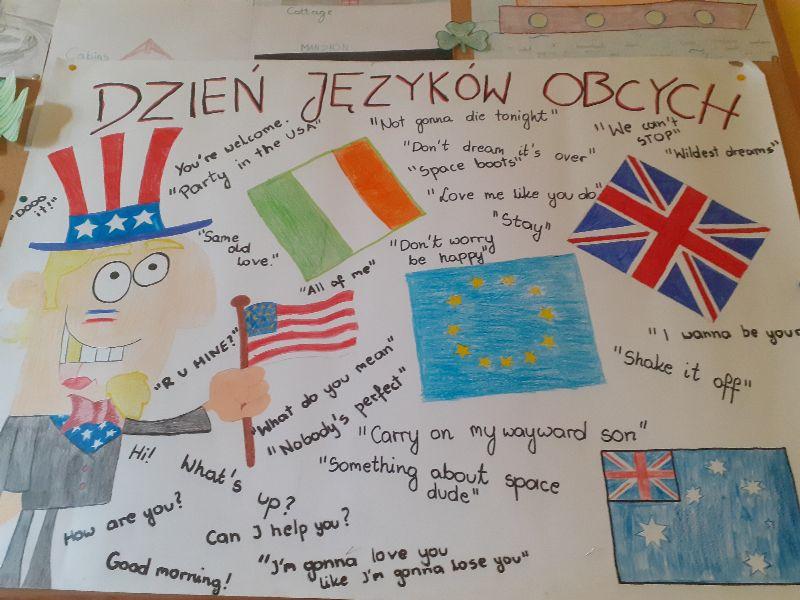 Cottage
Cabins
MANSION
DZIEŃ JĘZYKÓW OBCYCH
"DOOO
it!"
You're welcome.
"Party in the USA"
"Not gonna die tonight"
"Don't dream it's over"
"Space boots"
"We can't
STOP"
"Wildest dreams"
"Love me like you do"
"Stay"
"Same
old
love."
"Don't worry
be happy"
"All of me"
"R U MINE?"
"What do you mean"
"Nobody's perfect"
"I wanna be your
"Shake it off"
"Carry on my wayward son"
"Something about space
dude"
Hi!
What's
up?
How are you?
Can I help you?
Good morning!
"I'm gonna love you
like I'm gonna lose you"